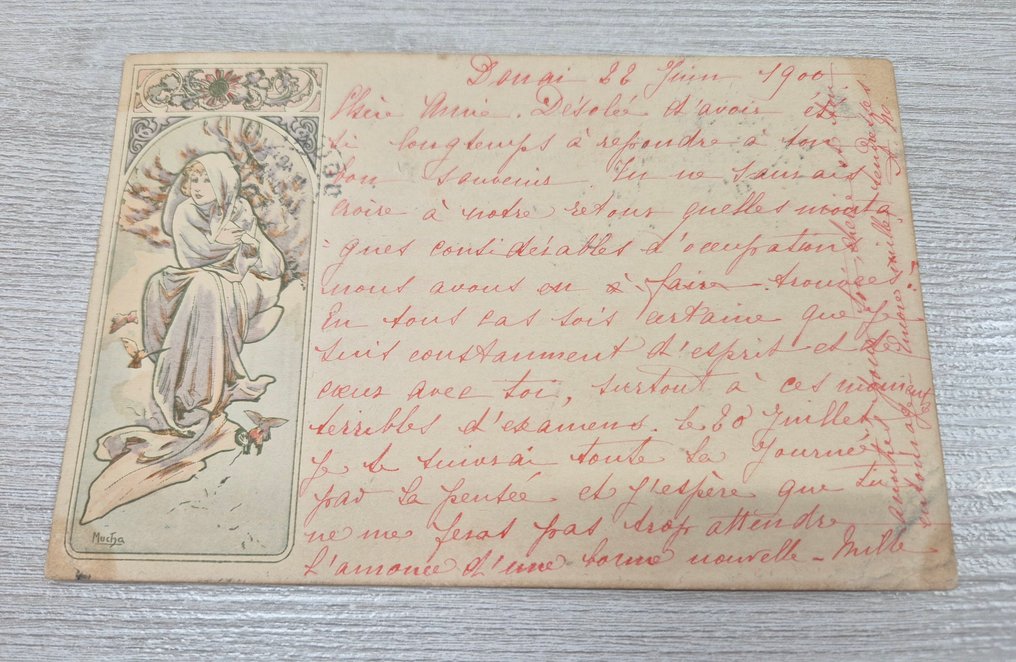 Douai 22 Juin 1900
Chère Amie. Désolée d'avoir été
si longtemps à repondre à ton
bon souvenir. Tu ne saurais
croire à notre retour quelles monta
gnes considérables d'occupations
nous avons en à faire - trouvée
En tous cas sois certaine que je
suis constanment d'esprit et de
cœur avec toi, surtout à ces moments
terribles d'examens. Le 20 Juillet
je te suivrai toute la Journée
par la pensée et j'espère que tu
ne me feras pas trop attendre
l'annonce d'une bonne nouvelle - Mille
amitiés pour toi, chère
Mucha